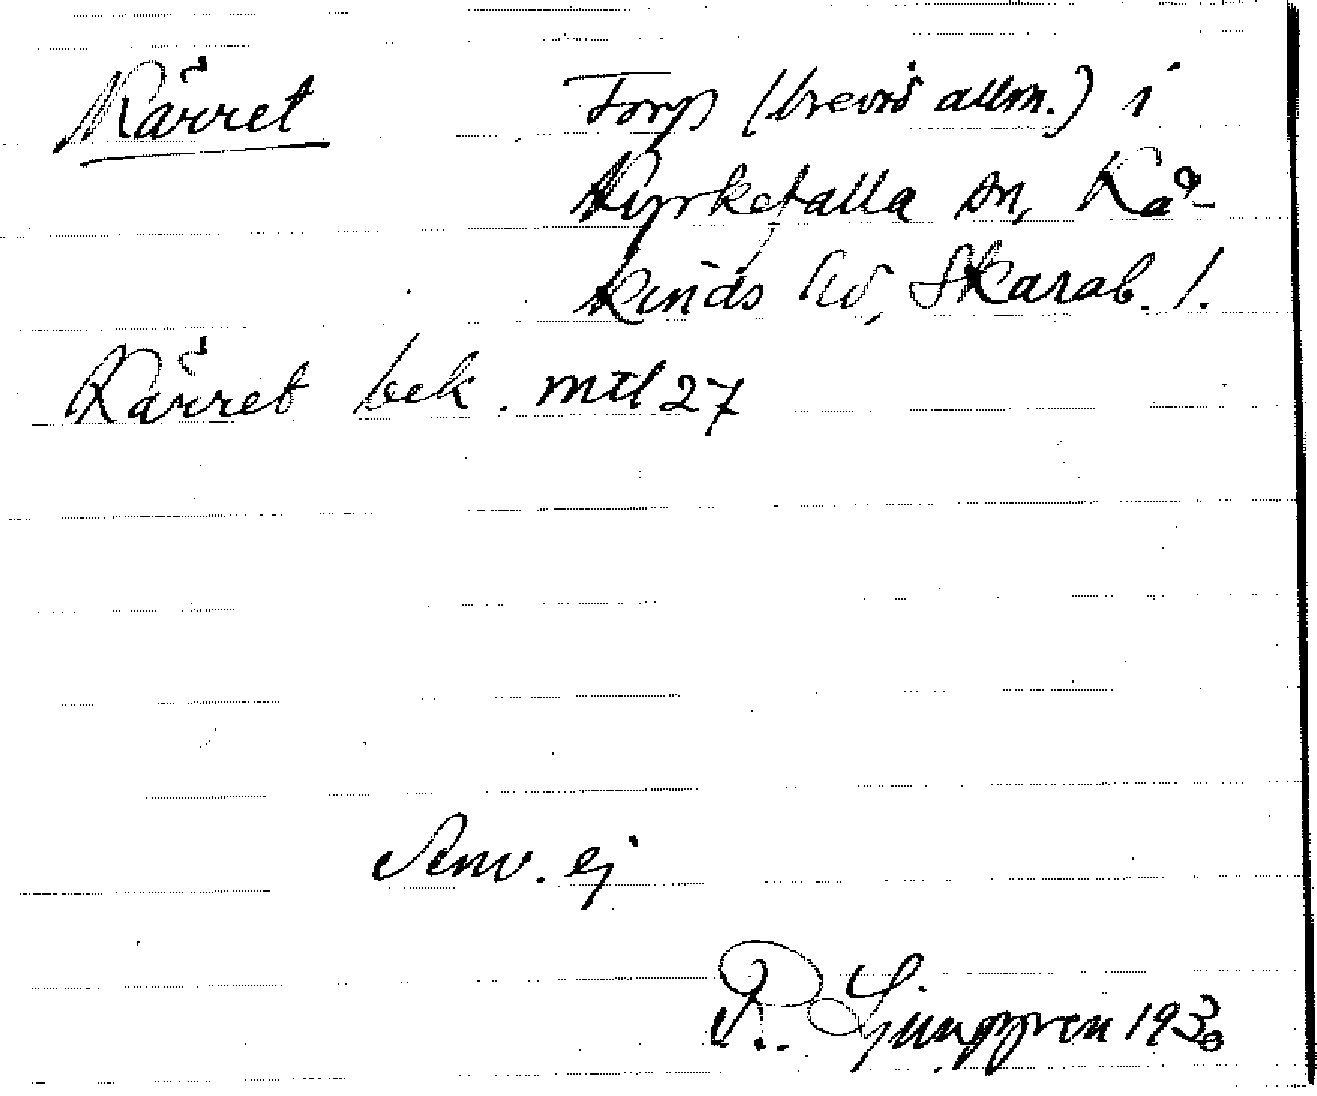 Kärret Torp (brevid allm.) i
Kyrkefalla sn, Kå-
kinds hd, Skarab. l.
Kärret bek. mtl 27
Anv. ej
R. Ljunggren 1930